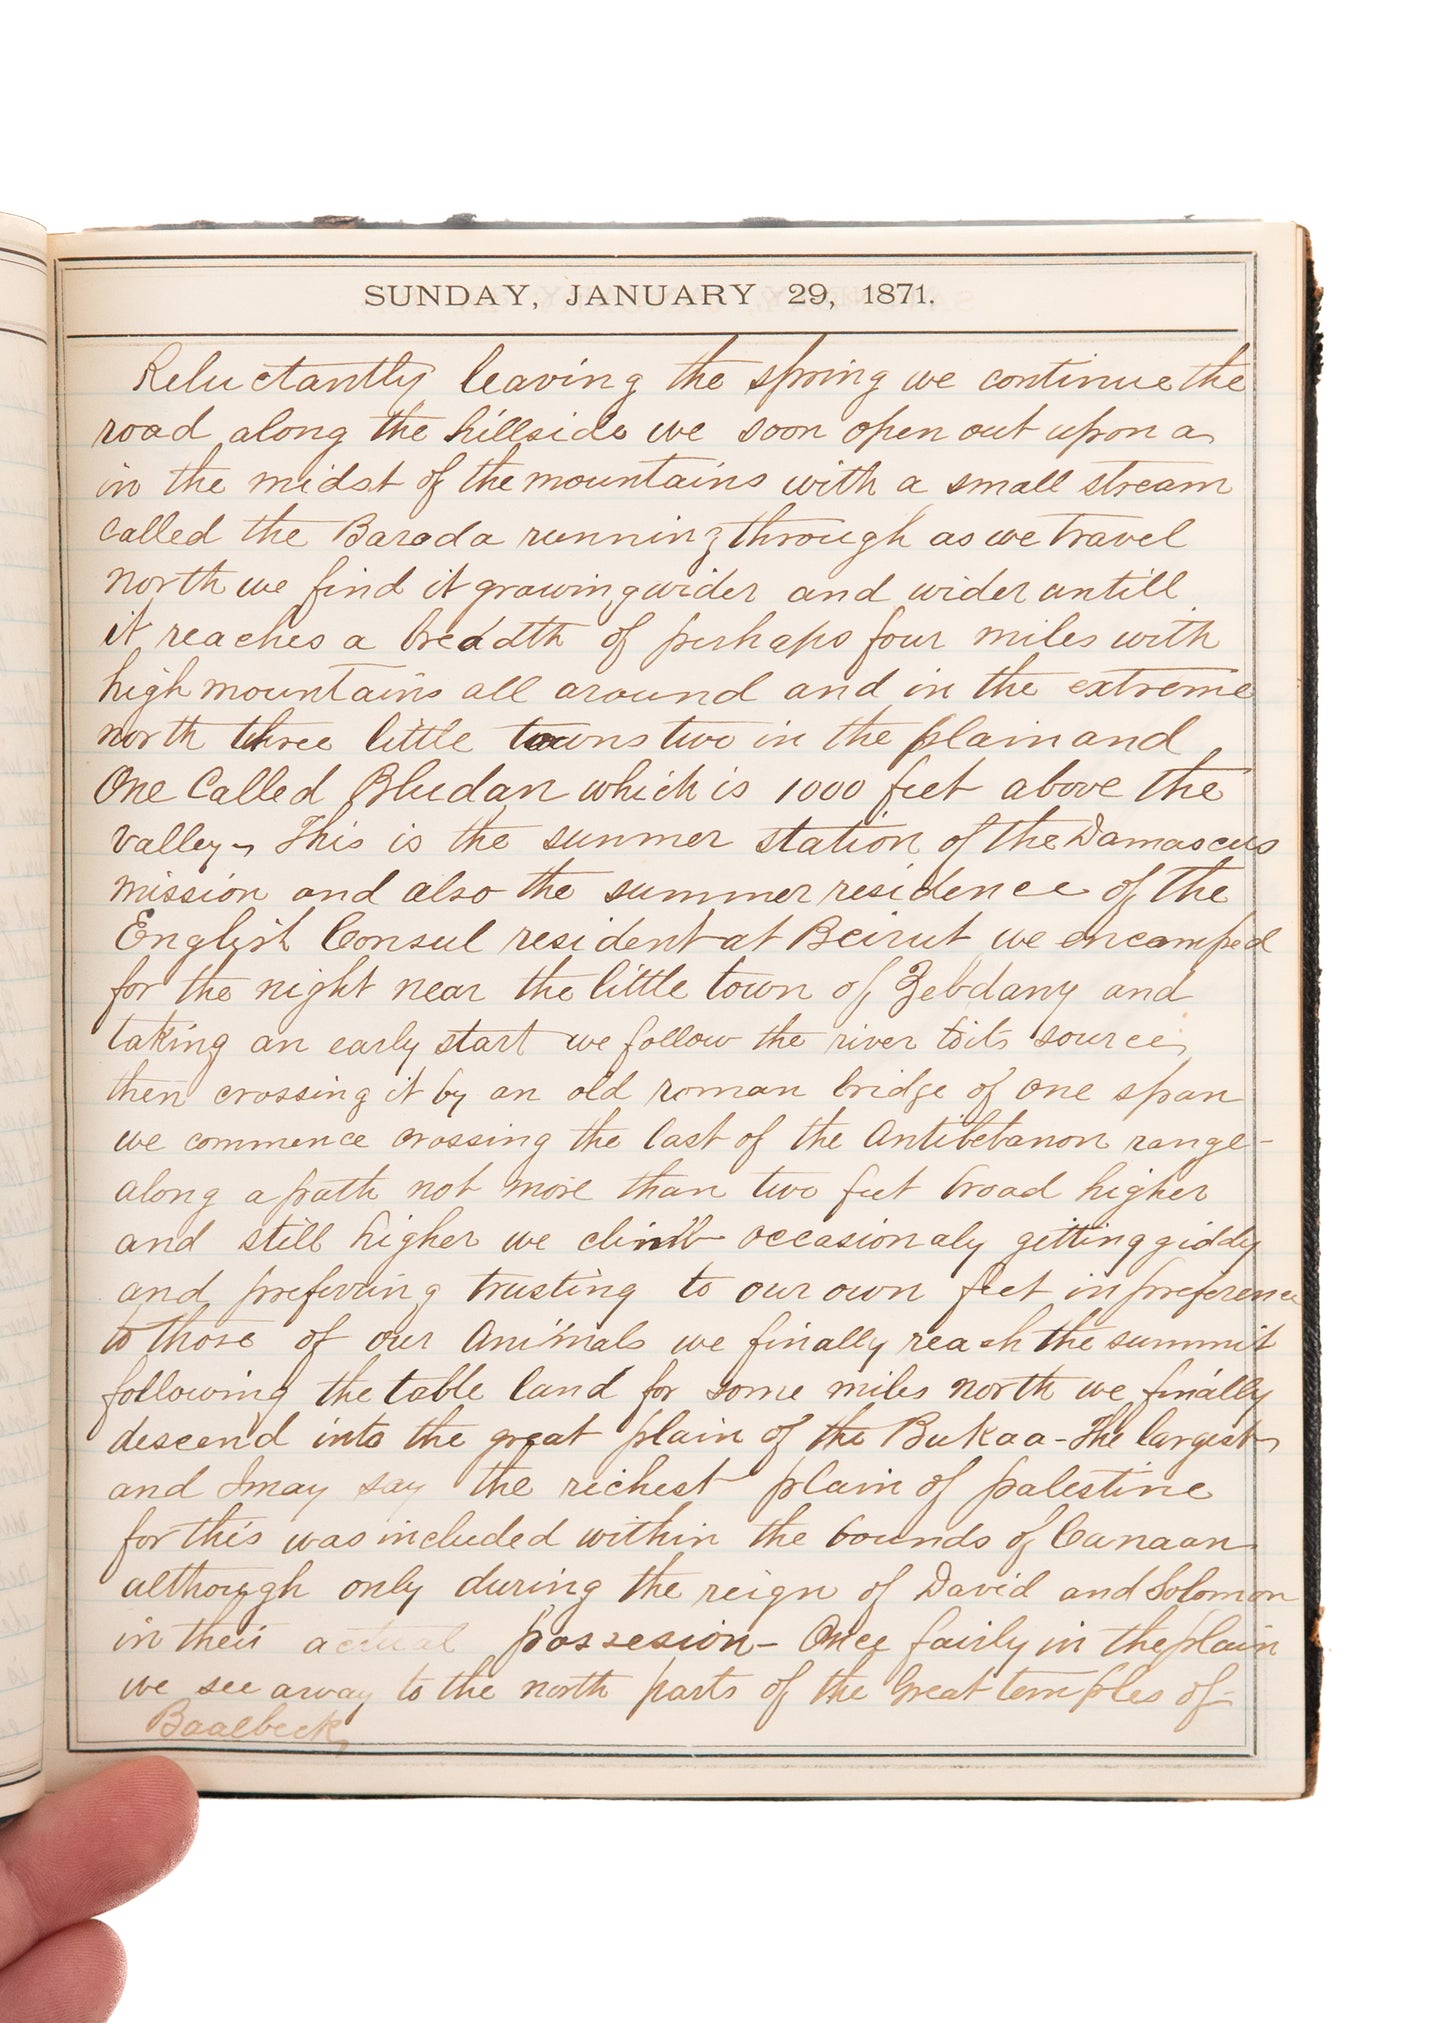 SUNDAY, JANUARY 29, 1871.
Reluctantly leaving the spring we continue the
road along the hillside we soon open out upon a
in the midst of the mountains with a small stream
called the Barada running through as we travel
north we find it growing wider and wider untill
it reaches a breadth of perhaps four miles with
high mountains all around and in the extreme
north three little towns two in the plain and
One Called Bludan which is 1000 feet above the
valley - This is the summer station of the Damascus
mission and also the summer residence of the
English Consul resident at Beirut we encamped
for the night near the little town of Zebdany and
taking an early start we follow the river to its source,
then crossing it by an old roman bridge of one span
we commence crossing the last of the Antilebanon range -
along a path not more than two feet broad higher
and still higher we climb occasionaly getting giddy
and prefering trusting to our own feet in preference
to those of our Animals we finally reach the summit
following the table land for some miles north we finally
descend into the great plain of the Bukaa - The largest
and I may say the richest plain of palestine
for this was included within the bounds of Canaan
although only during the reign of David and Solomon
in their actual possesion - Once fairly in the plain
we see away to the north parts of the Great temples of
Baalbeck,